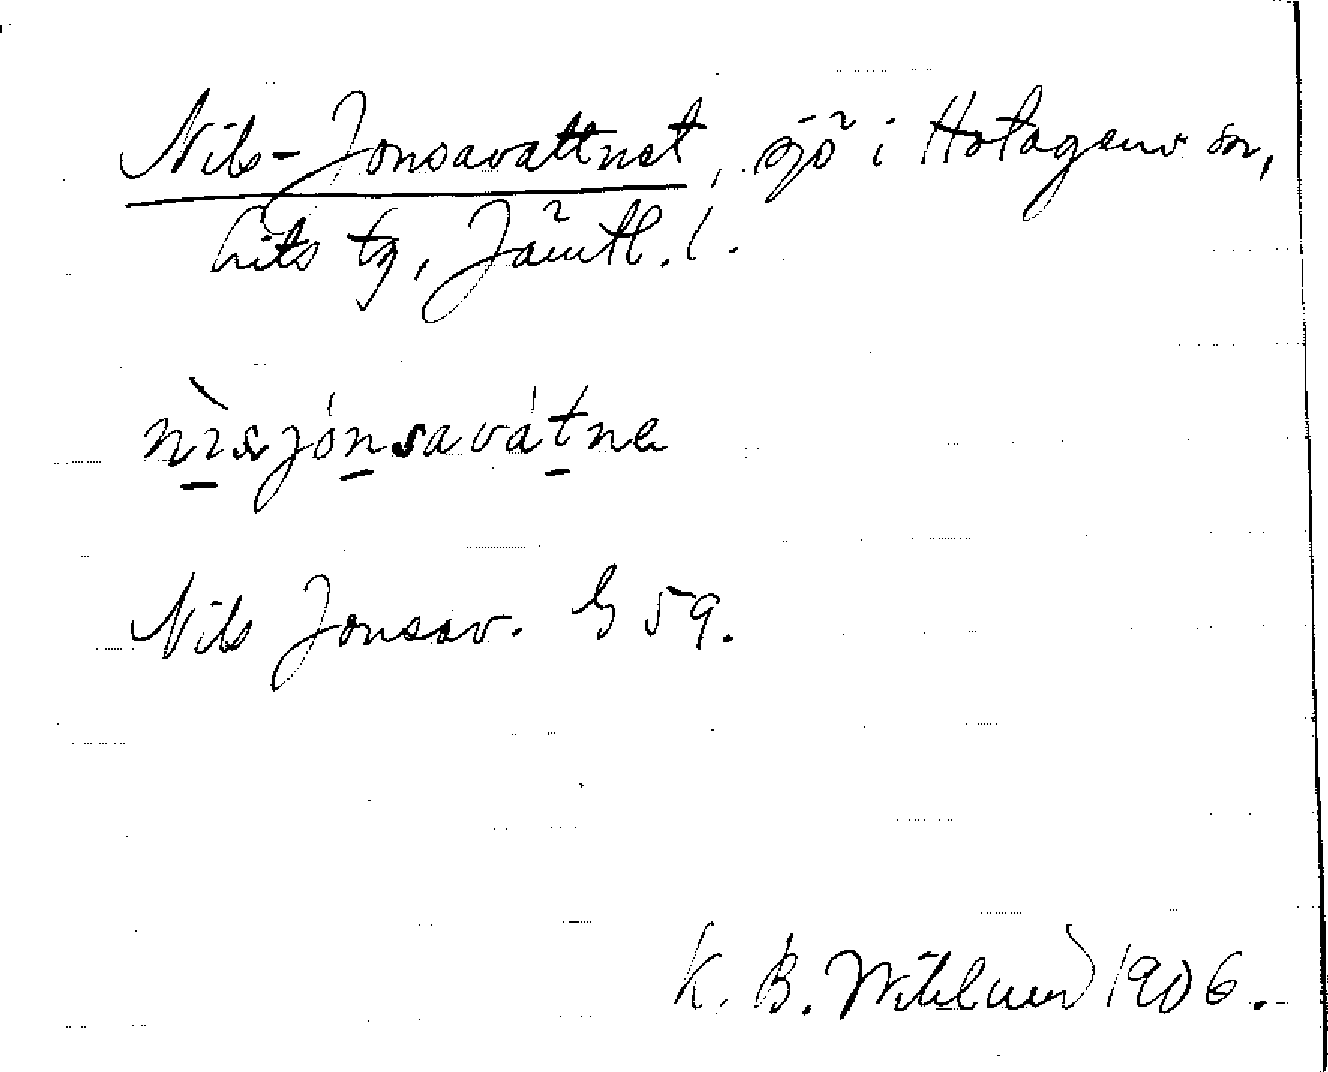 Nils-Jonsavattnet, sjö i Hotagens sn,
Lits tg, Jämtl. l.
nìsjónsavátne
Nils Jonsav. G 59.
K. B. Wiklund 1906.